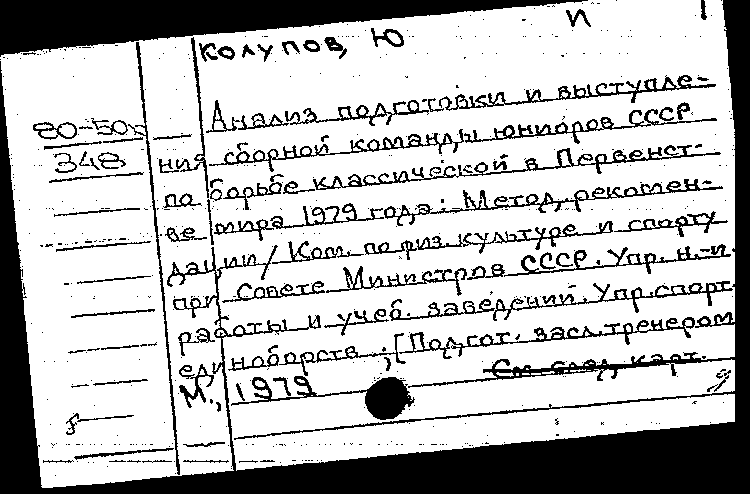 Колупов, Ю
И
80-50
348
Анализ подготовки и выступле-
ния сборной команды юниоров СССР
по борьбе классической в Первенст-
ве мира 1979 года: Метод. рекомен-
дации / Ком. по физ. культуре и спорту
при Совете Министров СССР. Упр. н.-и.
работы и учеб. заведений. Упр. спорт.
единоборств ; [Подгот. засл. тренером
См. след. карт.
М., 1979